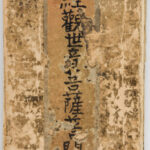 經觀世音菩薩普門